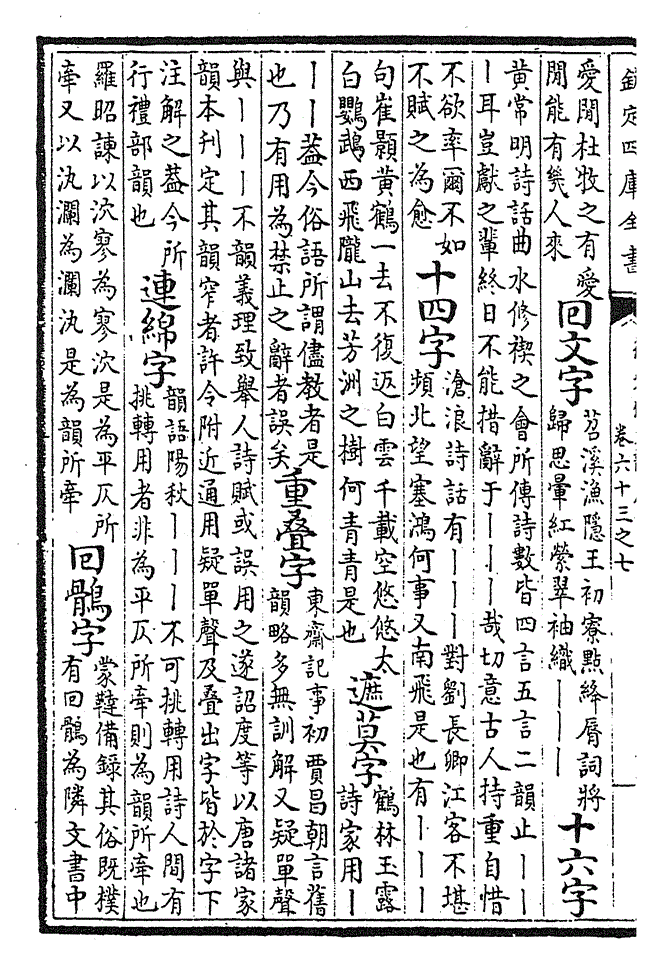 欽定四庫全書
卷六十三之七
愛閒杜牧之有愛
閒能有幾人來
回文字
苕溪漁隱王初寮點絳脣詞將
歸思暈紅縈翠袖織｜｜｜
十六字
黄常明詩話曲水修禊之會所傳詩數皆四言五言二韻止｜｜
｜耳豈獻之輩終日不能措辭于｜｜｜哉切意古人持重自惜
不欲率爾不如
不賦之為愈
十四字
滄浪詩話有｜｜｜對劉長卿江客不堪
頻北望塞鴻何事又南飛是也有｜｜｜
句崔顥黄鶴一去不復返白雲千載空悠悠太
白鸚鵡西飛隴山去芳洲之樹何青青是也
遮莫字
鶴林玉露
詩家用｜
｜｜葢今俗語所謂儘教者是
也乃有用為禁止之辭者誤矣
重疊字
東齋記事初賈昌朝言舊
韻略多無訓解又疑單聲
與｜｜｜不韻義理致舉人詩賦或誤用之遂詔度等以唐諸家
韻本刊定其韻窄者許令附近通用疑單聲及疊出字皆於字下
注解之葢今所
行禮部韻也
連綿字
韻語陽秋｜｜｜不可挑轉用詩人間有
挑轉用者非為平仄所牽則為韻所牽也
羅昭諫以泬寥為寥泬是為平仄所
牽又以汍瀾為瀾汍是為韻所牽
回鶻字
蒙韃備録其俗既樸
有回鶻為隣文書中